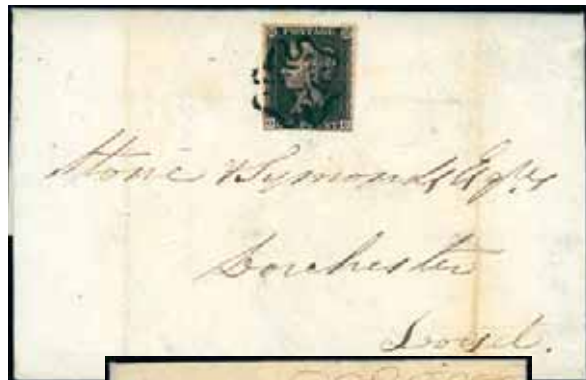 POSTAGE
Stone & Symonds Esqrs
Dorchester